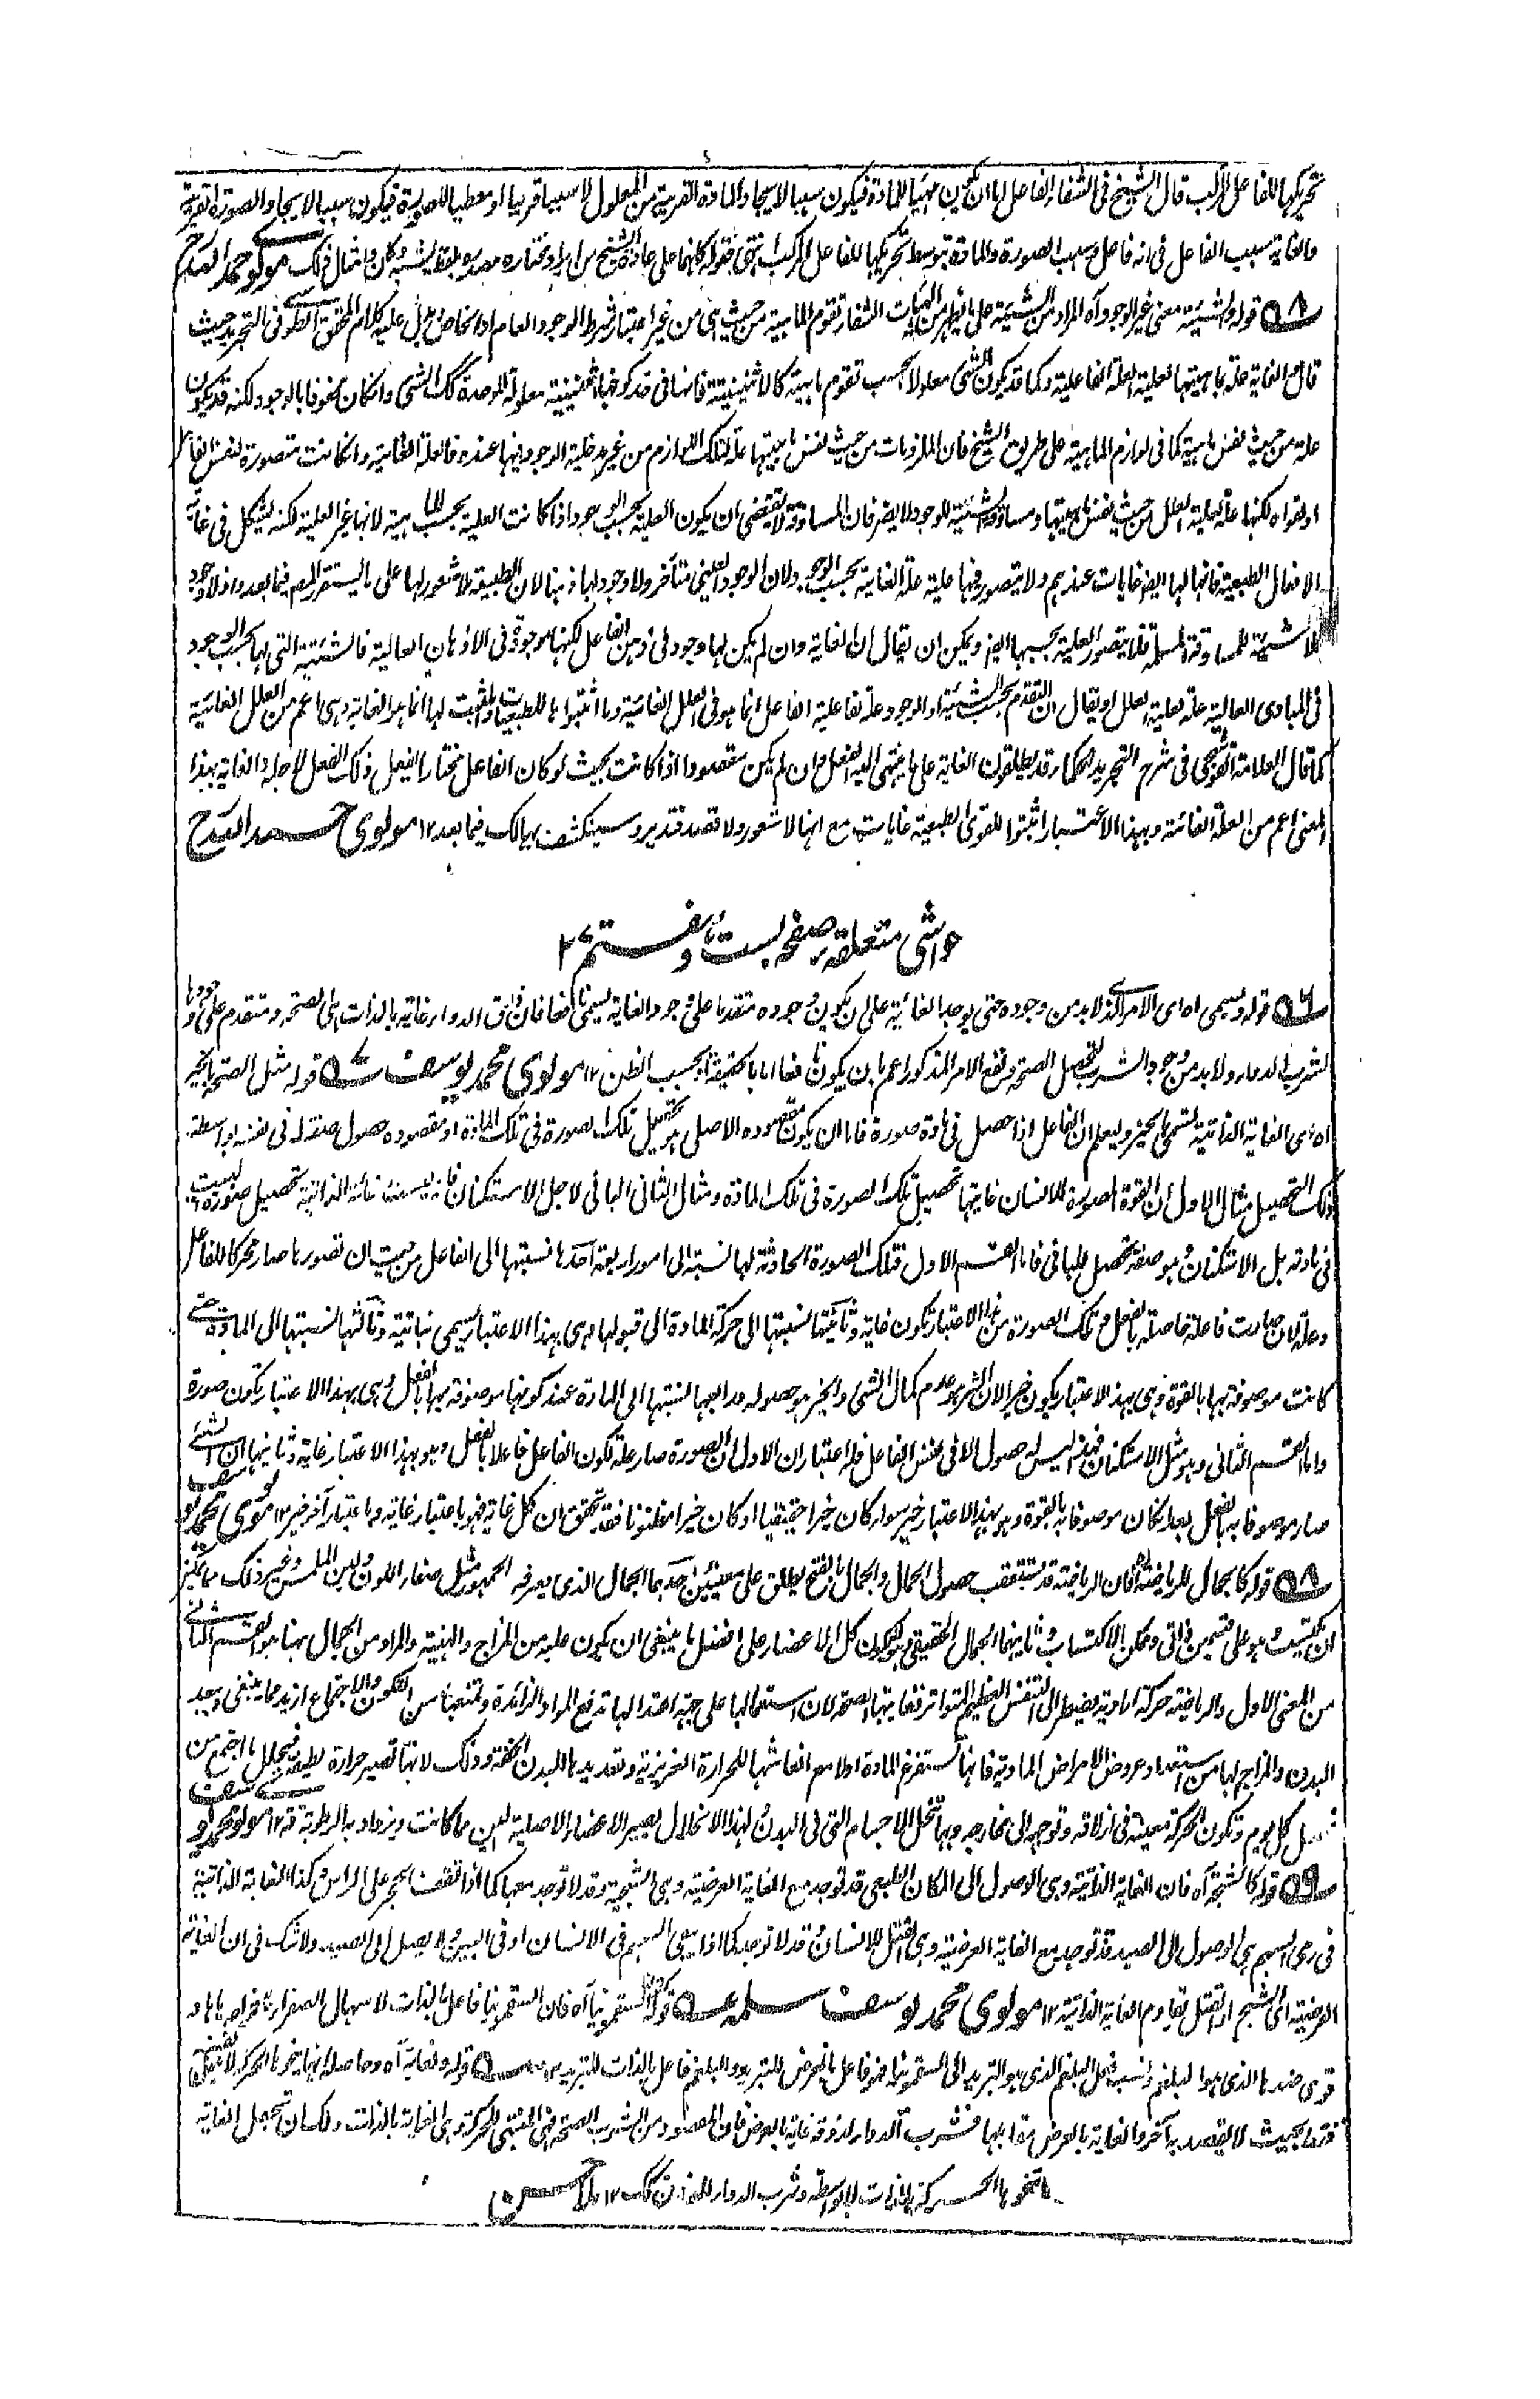 تحريكها للفاعل المركب قال الشيخ فى الشفاء الفاعل اما ان يكون مهيئا للمادة فيكون سببا لايجاد المادة القريبة من المعلول لا سببا قريبا او معطيا للصورة فيكون سببا لايجاد الصورة القريبة
والغاية سبب الفاعل فى انه فاعل وسبب الصورة والمادة بتوسط تحريكها للفاعل المركب انتهى فقوله كانها على عادة الشيخ من ايراد مختاره مصدرا بلفظ يشبه وكان وامثال ذلك مولوى حمد الله
قوله والشيئية معنى غير الوجود آه المراد من الشيئية على ما يظهر من الهيات الشفاء تقوم الماهية من حيث هى من غير اعتبار شرط الوجود العام او الخاص يدل عليه كلام المحقق الطوسى فى التجريد حيث
قال الغاية علة بماهيتها لعلية العلة الفاعلية وكما قد يكون الشئ معلولا بحسب تقوم ماهيته كالاثنينية فانها فى حد كونها اثنينية معلولة للوحدة كذلك الشئ وان كان محفوفا بالوجود لكنه قد يكون
علة من حيث نفس ماهيته كما فى لوازم الماهية على طريق الشيخ فان الملزومات من حيث نفس ماهيتها علة لتلك اللوازم من غير مدخلية الوجود فيها عنده فالعلة الغائية وان كانت متصورة لنفس الفاعل
او لقواه لكنها علة لعلية العلل من حيث نفس ماهيتها ومساوقة الشيئية للوجود لا يضر فان المساوقة لا تقتضى ان يكون العلية بحسب الوجود اذا كانت العلية بحسب الماهية لانها غير العلية لكنه يشكل فى غاية
الافعال الطبعية فانها لها ايضا غايات عندهم ولا يتصور فيها علية علة الغائية بحسب الوجود لان الوجود العينى متأخر ولا وجود لها ذهنا لان الطبيعة لا شعور لها على ما يستقر المصـ فيما بعد واذ لا وجود
لا شيئية للمساوقة المسلمة فلا يتصور العلية بحسبها ايضا ويمكن ان يقال ان الغاية وان لم يكن لها وجود فى ذهن الفاعل لكنها موجودة فى الاذهان العالية فالشيئية التى لها بحسب الوجود
فى المبادى العالية علة لعلية العلل او يقال ان التقدم بحسب الشيئية او الوجود وعلة لفاعلية الفاعل انما هو فى العلل الغائية وما اثبتوا بالطبعيات والمثبت لها انما هو الغاية وهى اعم من العلل الغائية
كما قال العلامة القوشجى فى شرح التجريد الحكماء قد يطلقون الغاية على ما ينتهى اليه الفعل وان لم يكن مقصودا اذا كانت بحيث لو كان الفاعل مختارا لفعل ذلك الفعل لاجله والغاية بهذا
المعنى اعم من العلة الغائية وبهذا الاعتبار اثبتوا للقوى الطبعية غايات مع انها لا شعور ولا قصد فتدبر وسينكشف بها لك فيما بعد ١٢ مولوى حمد الله
حواشى متعلقه بر صفحه بست وهفتم ٢٧
قوله ويسمى اه اى الامر الذى لابد من وجوده حتى يوجد الغائية على ان يكون وجوده متقدما على وجود الغاية يسمى نافعا فان ذوق الدواء غاية بالذات الى الصحة ومتقدم على وجودها
لشرب الدواء ولا بد من وجود الشرب لتحصل الصحة ونفع الامر المذكور اعم بان يكون نافعا اما بالحقيقة او بحسب الظن ١٢ مولوى محمد يوسف قوله مثل الصحة بالخير
اه اى الغاية الذاتية تسمى بالخير وليعلم ان الفاعل اذا حصل فى مادة صورة فاما ان يكون مقصوده الاصلى هو تحصيل تلك الصورة فى تلك المادة او مقصوده حصول صفة له فى نفسه بواسطة
ذلك التحصيل مثال الاول ان القوة المصورة للانسان غايتها تحصيل تلك الصورة فى تلك المادة ومثال الثانى البانى لاجل الاستكنان فانه ليست غايته الذاتية تحصيل صورة البيت
فى مادته بل الاستكنان وهو صفة تحصل للبانى فاما القسم الاول فتلك الصورة الحادثة لها نسبة الى امور اربعة احدها نسبتها الى الفاعل من حيث ان تصورها صار محركا للفاعل
وعلة لان صارت فاعلة حاصلة بالفعل وتلك الصورة من هذا الاعتبار تكون غاية وثانيتها نسبتها الى حركة المادة الى قبولها وهى بهذا الاعتبار يسمى نهاية وثالثها نسبتها الى المادة حتى
كانت موصوفة بها بالقوة وهى بهذا الاعتبار يكون خيرا لان الشر هو عدم كمال الشئ والخير هو حصوله ورابعها نسبتها الى المادة عند كونها موصوفة بها بالفعل وهى بهذا الاعتبار تكون صورة
واما القسم الثانى وهو مثل الاستكنان فهذا ليس له حصول الا فى نفس الفاعل فله اعتباران الاول ان الصورة صار علة لكون الفاعل فاعلا بالفعل وهو بهذا الاعتبار غاية وثانيها ان الشئ
صار موصوفا به بالفعل بعد ان كان موصوفا به بالقوة وهو بهذا الاعتبار خير سواء كان خيرا حقيقيا او كان خيرا مظنونا فقد تحقق ان كل غاية فهو باعتبار غاية وباعتبار آخر خير ١٢ مولوى محمد يوسف
قوله كالجمال للرياضة اه فان الرياضة قد تستعقب حصول الجمال والجمال بالفتح يطلق على معنيين احدهما الجمال الذى يعرفه الجمهور مثل صفاء اللون ولين الملمس وغير ذلك مما يمكن
ان يكتسب وهو على قسمين ذاتى وممكن الاكتساب وثانيهما الجمال الحقيقى وهو كون كل الاعضاء على افضل ما ينبغى ان يكون عليه من المزاج والهيئة والمراد من الجمال ههنا هو القسم الثانى
من المعنى الاول والرياضة حركة ارادية يضطر الى التنفس العظيم المتواتر غايتها الصحة لان استعمالها على جهة اعتدالها تدفع المواد الزائدة وتمنعها من التكون والاجتماع ازيد مما ينبغى ويبعد
البدن والمزاج لها من استعداد عروض الامراض المادية فانها تستفرغ المادة اولا مع انعاشها للحرارة الغريزية وتعديد ما للبدن الخفة وذلك لانها تصير حرارة لطيفة فيحلل ما اجتمع من
كل يوم وتكون الحركة معينة فى ازلاقه وتوجهه الى مخارجه وبها تتخلل الاجسام التى فى البدن لهذا الانحلال يصير الاعضاء الاصلية الين مما كانت ويزداد به الرطوبة ١٢ مولوى محمد يوسف
قوله كالشجة آه فان الغاية الذاتية وهى الوصول الى المكان الطبعى قد توجد مع الغاية العرضية وهى الشجة وقد لا توجد معها كما اذا وقف الحجر على الراس وكذا الغاية الذاتية
فى رمى السهم هى الوصول الى الصيد قد توجد مع الغاية العرضية وهى القتل للانسان وقد لا توجد كما اذا بقى السهم فى الانسان او فى البين ولا يصل الى الصيد ولا شك فى ان الغاية
العرضية اى الشج او القتل يقاوم الغاية الذاتية ١٢ مولوى محمد يوسف سلمه قوله كالسقمونيا آه فان السقمونيا فاعل بالذات لاسهال الصفراء
قوى ضدها الذى هو البلغم ونسب فعل البلغم الذى هو التبريد الى السقمونيا فهو فاعل بالعرض للتبريد والبلغم فاعل بالذات للتبريد ١٢ قوله ولغاية آه وحاصله انها يتحرك بالحركة
بحيث لا يقصد به آخر والغاية بالعرض مقابلها فشرب الدواء لذوقه غاية بالعرض فان المقصود من الشرب الصحة فهى المنتهى للحركة وهى الغاية بالذات ولك ان تجعل الغاية
ما تنحوها الحركة بالذات لا بالواسطة وشرب الدواء للذوق كذلك ١٢ ملا حسن